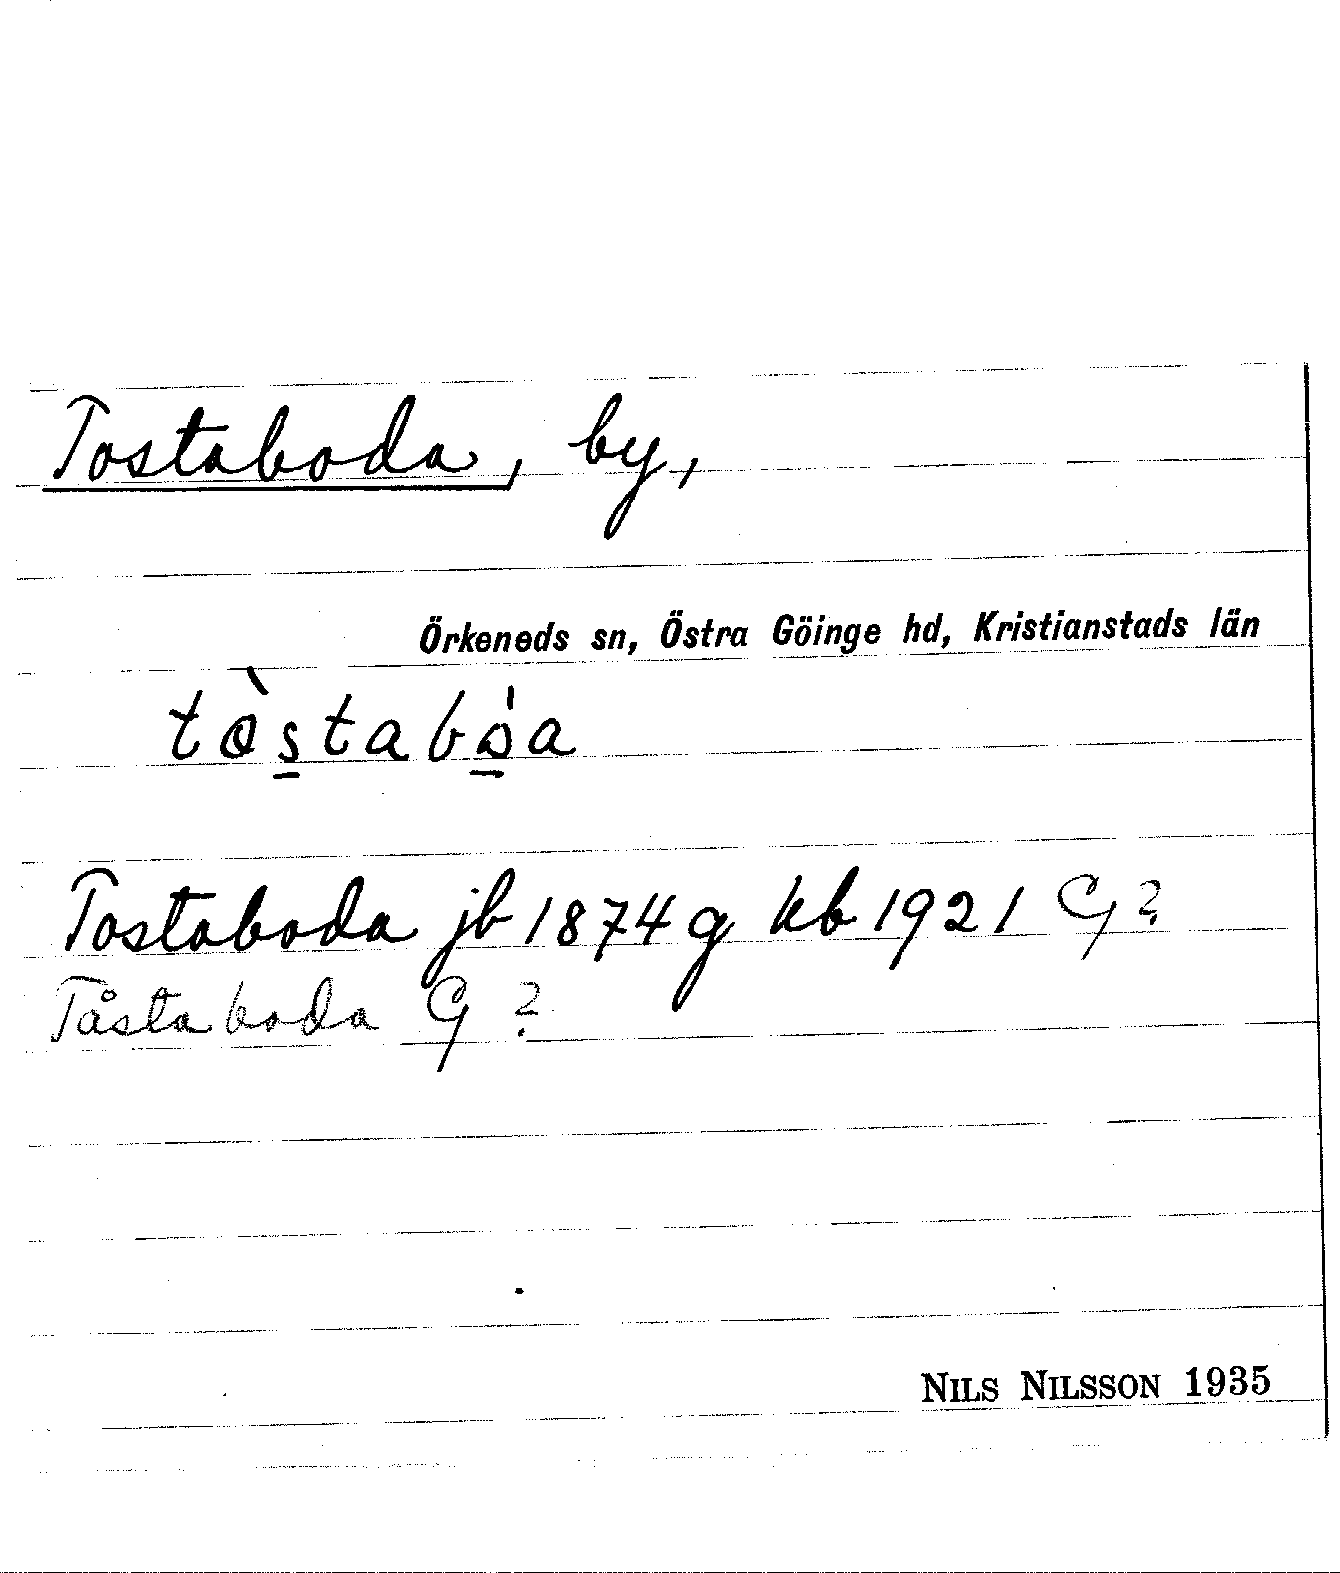 Tostaboda, by,
Örkeneds sn, Östra Göinge hd, Kristianstads län
Tostaboda jb 1874 g kb 1921 G?
Tåstaboda G ?
NILS NILSSON 1935